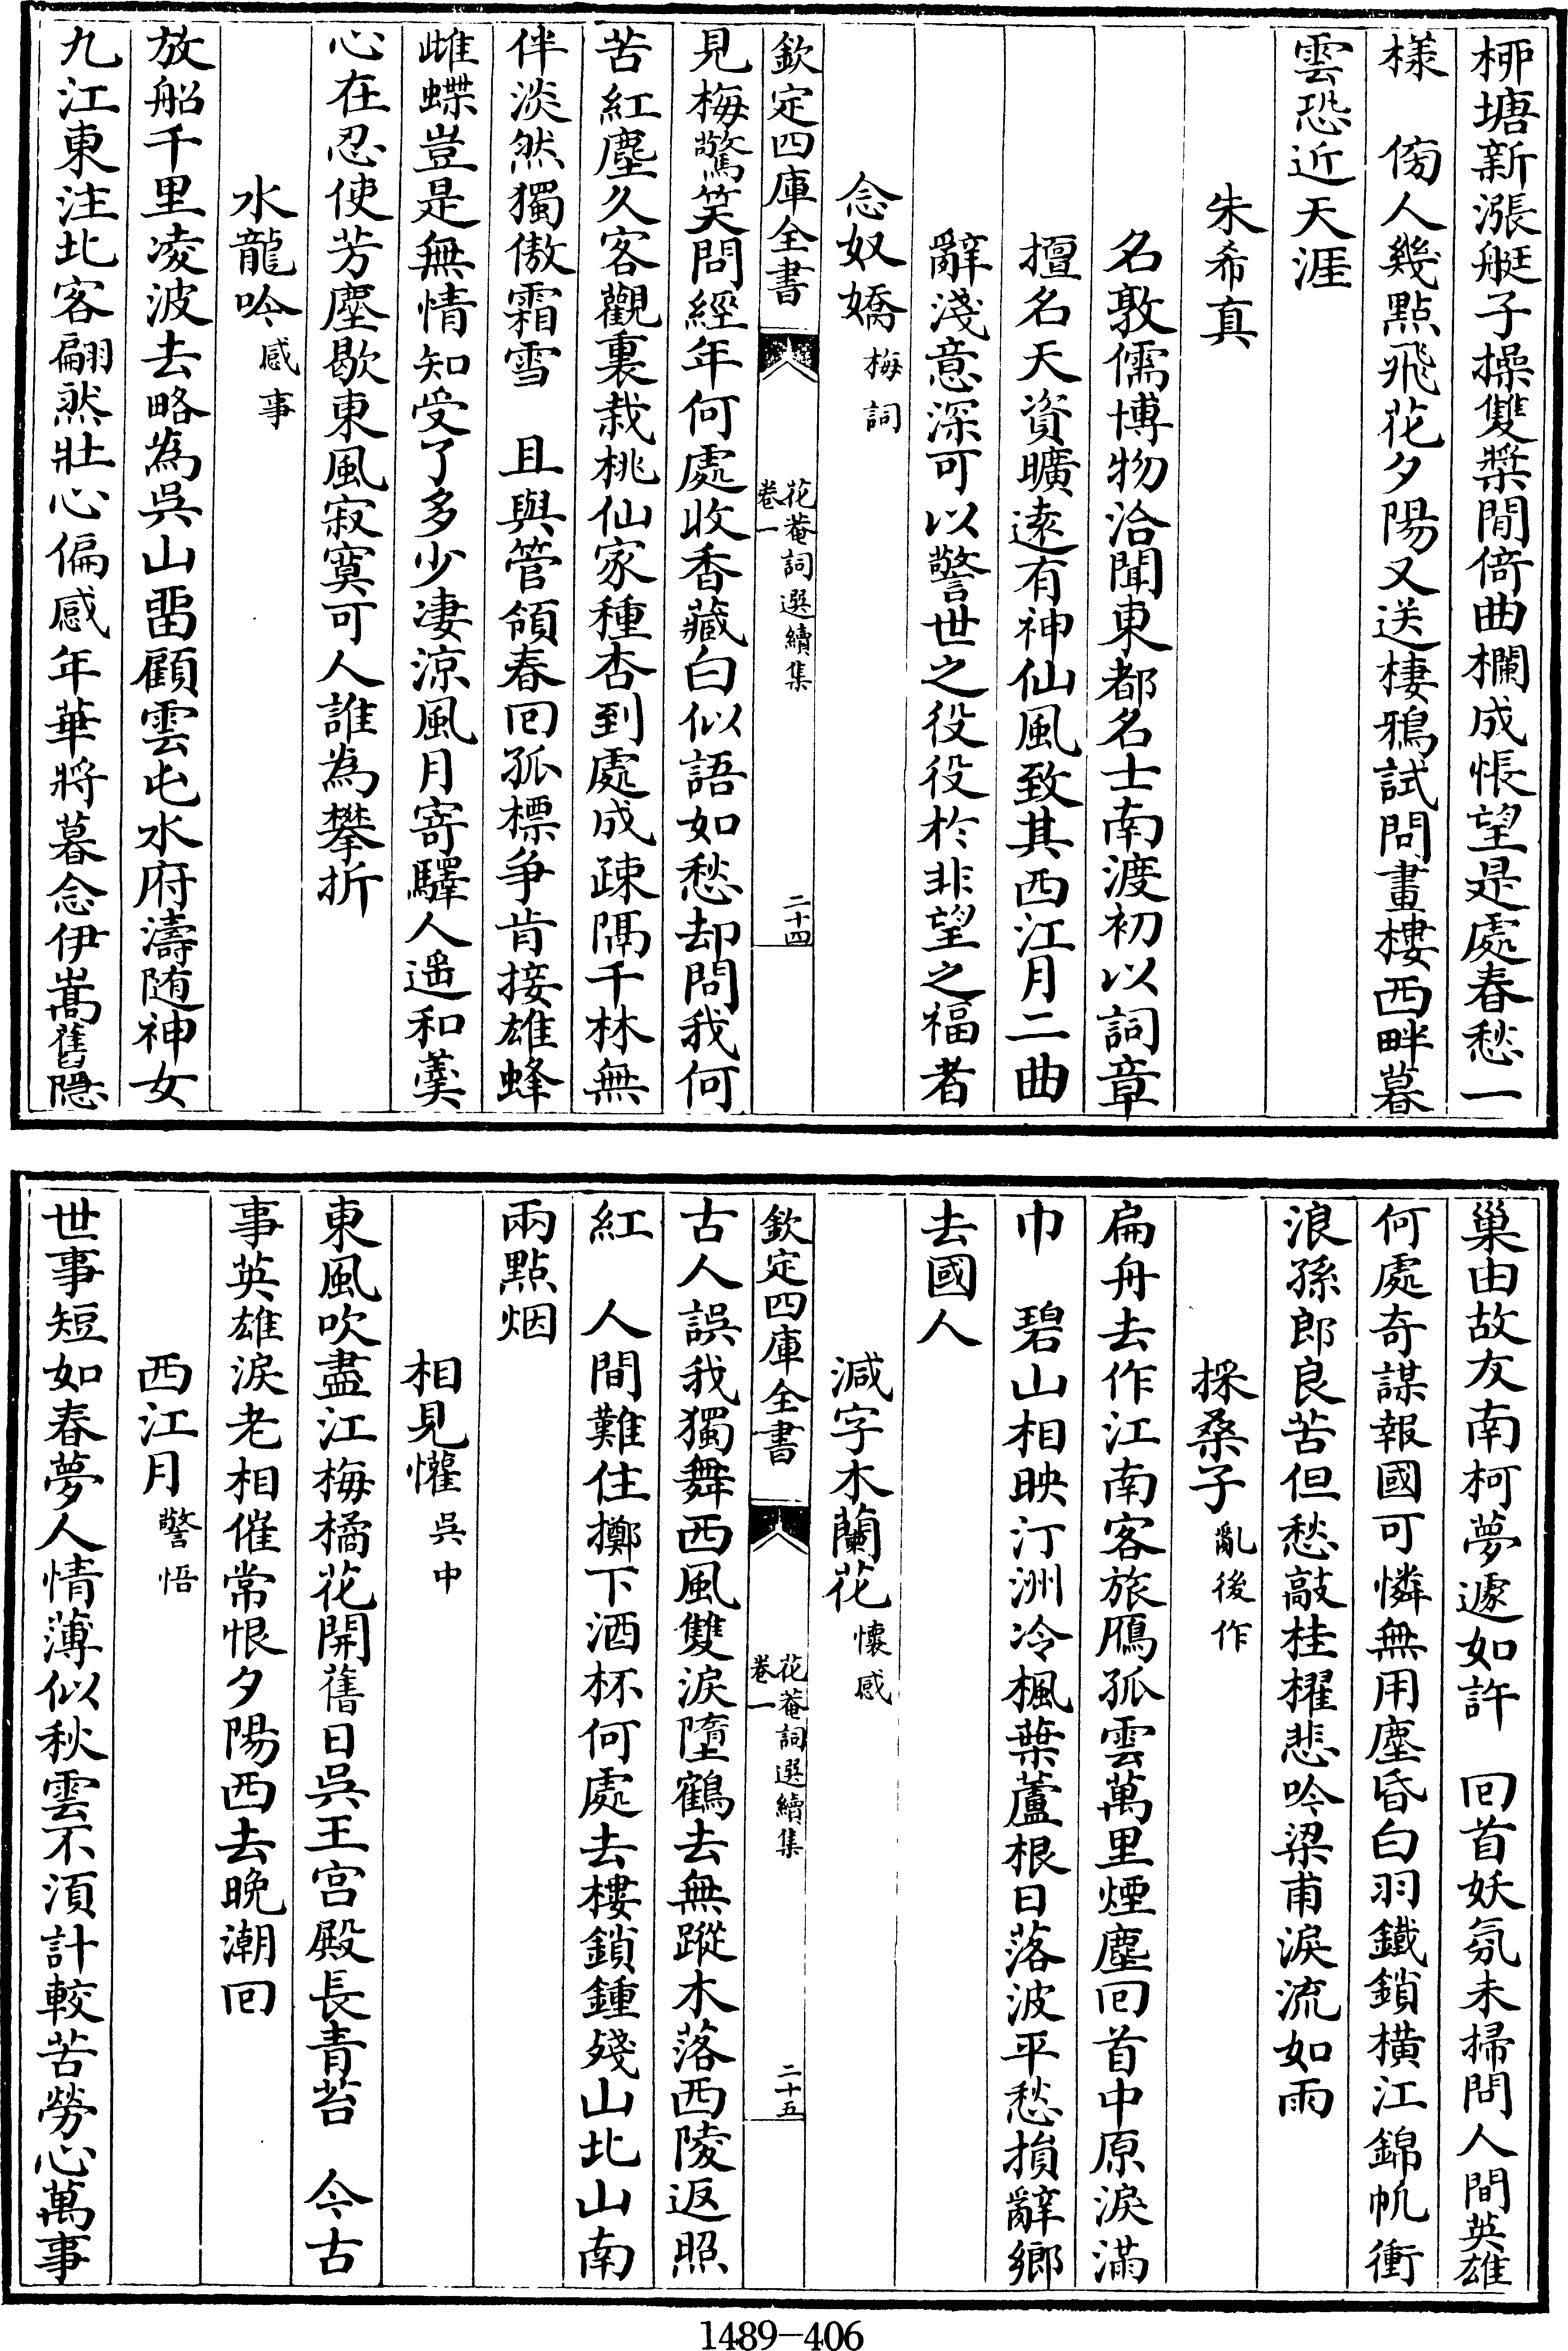 栁塘新漲艇子操雙槳閒倚曲欄成悵望是處春愁一
様　傍人幾點飛花夕陽又送棲鴉試問畫樓西畔暮
雲恐近天涯
朱希真
名敦儒博物洽聞東都名士南渡初以詞章
擅名天資曠逺有神仙風致其西江月二曲
辭淺意深可以警世之役役於非望之福者
念奴嬌梅詞
欽定四庫全書　花菴詞選續集　卷一　二十四
見梅驚笑問經年何處收香藏白似語如愁却問我何
苦紅塵久客觀裏栽桃仙家種杏到處成疎隔千林無
伴淡然獨傲霜雪　且與管領春囘孤標争肯接雄蜂
雌蝶豈是無情知受了多少凄涼風月寄驛人遥和羮
心在忍使芳塵歇東風寂寞可人誰為攀折
水龍吟感事
放船千里凌波去略為吳山畱顧雲屯水府濤随神女
九江東注北客翩然壯心偏感年華將暮念伊嵩舊隠
巢由故友南柯夢遽如許　囘首妖氛未掃問人間英雄
何處奇謀報國可憐無用塵昏白羽鐵鎖橫江錦帆衝
浪孫郎良苦但愁敲桂櫂悲吟梁甫淚流如雨
採桑子亂後作
扁舟去作江南客旅鴈孤雲萬里煙塵囘首中原淚滿
巾　碧山相映汀洲冷楓葉蘆根日落波平愁損辭鄉
去國人
減字木蘭花懷感
欽定四庫全書　花菴詞選續集　卷一　二十五
古人誤我獨舞西風雙淚墮鶴去無蹤木落西陵返照
紅　人間難住擲下酒杯何處去樓鎖鍾殘山北山南
兩點烟
相見懽吳中
東風吹盡江梅橘花開舊日吳王宫殿長青苔　今古
事英雄淚老相催常恨夕陽西去晚潮囘
西江月警悟
世事短如春夢人情薄似秋雲不湏計較苦勞心萬事
1489—406